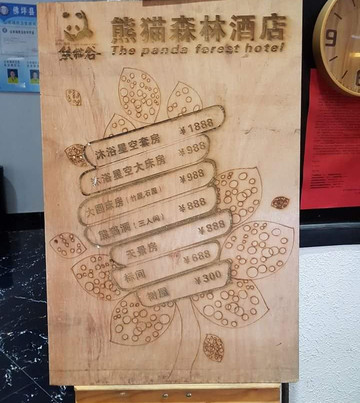 熊猫谷
熊猫森林酒店
The panda forest hotel
沐浴星空套房 ￥1888
沐浴星空大床房 ￥988
大圆床房（竹屋,石屋） ￥988
（三人间） ￥888
天景房 ￥888
标间 ￥688
￥300